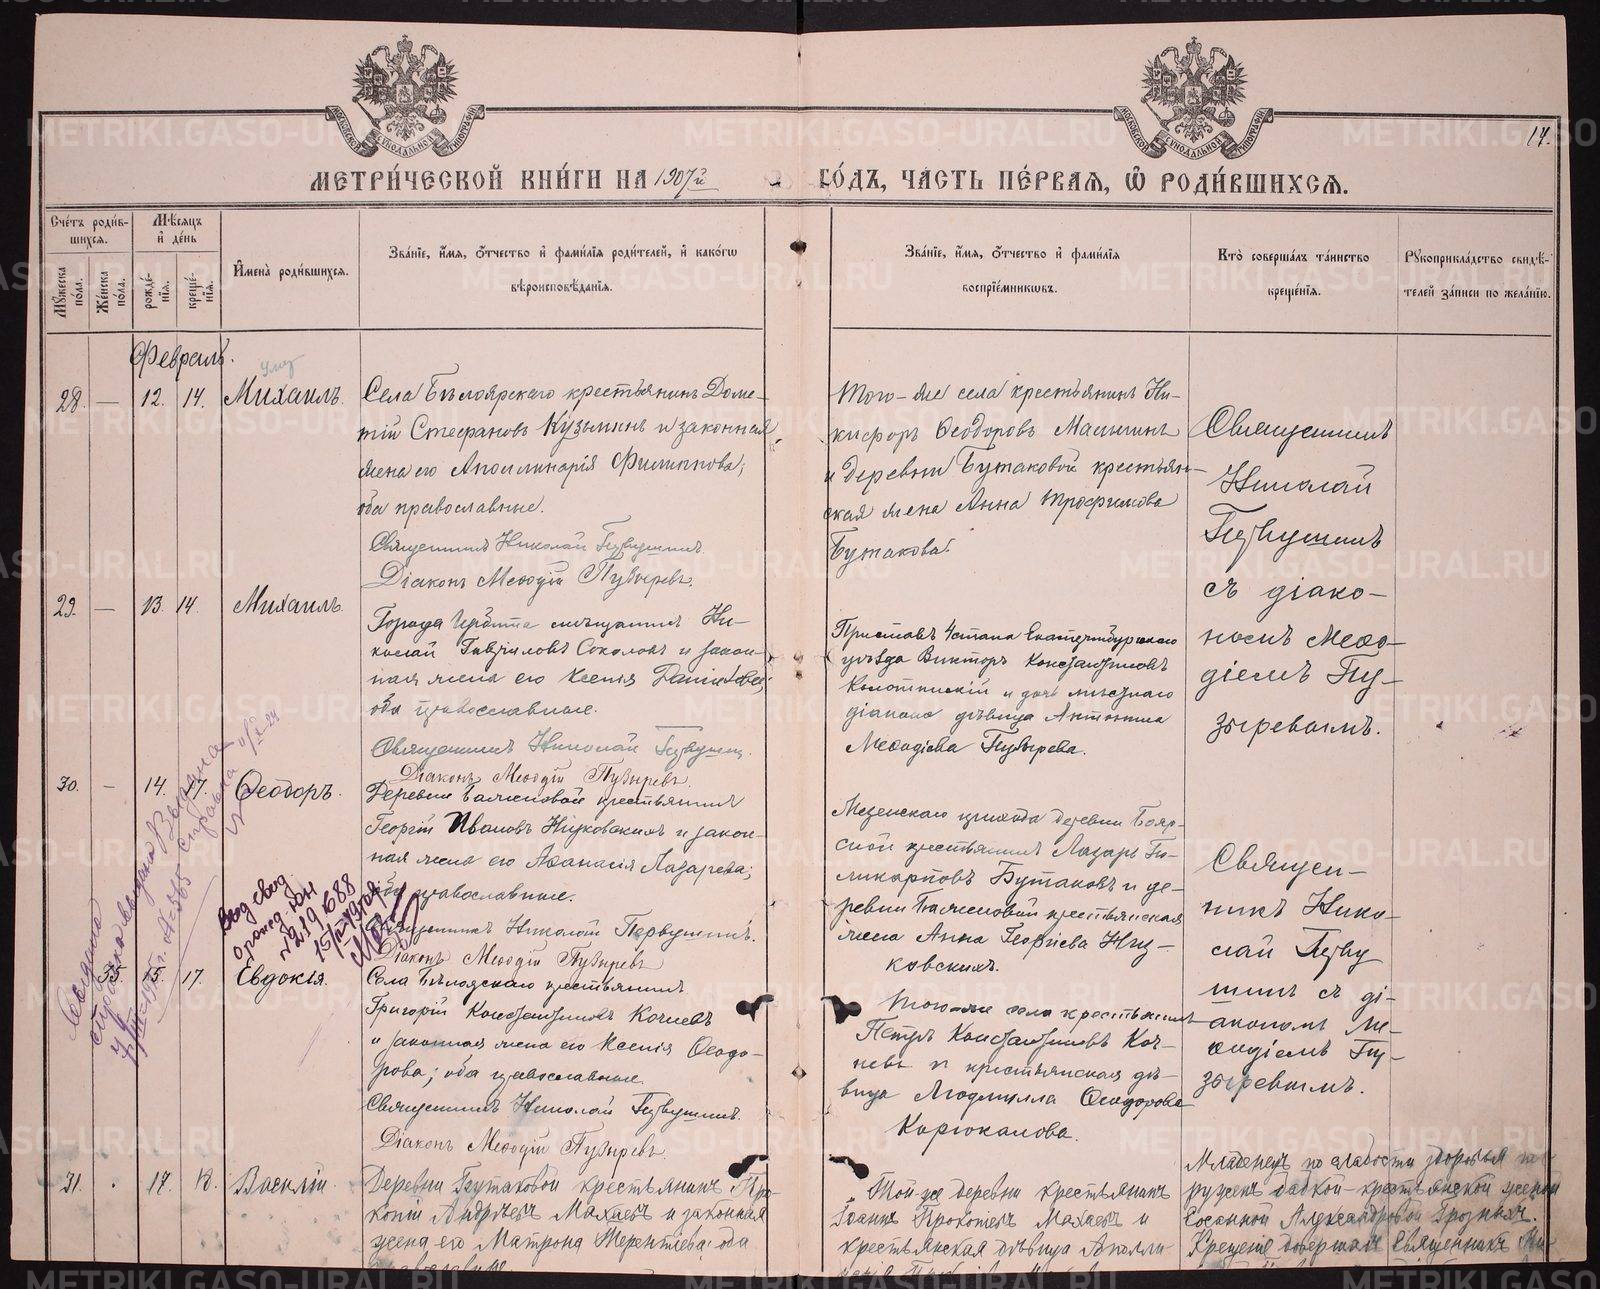 МЕТРИ́ЧЕСКОЙ КНИ́ГИ НА 1907й ГО́ДЪ, ЧА́СТЬ ПЕ́РВАЯ, Ѽ РОДИ́ВШИХСЯ.
17.
Сче́тъ роди́в-
шихся.
Мѣ́сяцъ
и де́нь
Му́жеска по́ла.
Же́нска по́ла.
рожде́-
нїя.
креще́-
нїя.
И҆мена̀ роди́вшихся.
Зва́нїе, и҆́мя, ѻ҆́тчество и҆ фами́лїя роди́телей, и҆ како́гѡ
вѣроисповѣ́данїя.
Зва́нїе, и҆́мя, ѻ҆́тчество и҆ фами́лїя
воспрїе́мникѡвъ.
Кто̀ соверша́лъ та́инство
креще́нїя.
Рꙋкоприкла́дство свидѣ́-
телей за́писи по жела́нїю.
Февраль.
28. — 12. 14. Михаилъ.
Села Бѣлоярскаго крестьянинъ Доме-
тій Стефановъ Кузьминъ и законная
жена его Аполлинарія Филиппова;
оба православные.
Священникъ Николай Первушинъ.
Діаконъ Меѳодій Пузыревъ.
Того-же села крестьянинъ Ни-
кифоръ Ѳеодоровъ
и деревни Бутаковой крестьян-
ская жена Анна Трофимова
Бутакова.
Священникъ
Николай
Первушинъ
съ діако-
номъ Меѳо-
діемъ Пу-
зыревымъ.
29. — 13. 14. Михаилъ.
Города Ирбита мѣщанинъ Ни-
колай Гавриловъ Соколовъ и закон-
ная жена его Ксенія
оба православные.
Священникъ Николай Первушинъ
Діаконъ Меѳодій Пузыревъ.
Приставъ 4 стана Екатеринбургскаго
уѣзда Викторъ Константиновъ
и дочь мѣстнаго
діакона дѣвица Антонина
Меѳодіева Пузырева.
30. — 14. 17. Ѳеодоръ.
Деревни крестьянинъ
Георгій Ивановъ и закон-
ная жена его Аѳанасія Лазарева;
оба православные.
Священникъ Николай Первушинъ.
Діаконъ Меѳодій Пузыревъ
Мезенскаго прихода деревни Бояр-
ской крестьянинъ Лазарь По-
ликарповъ Бутаковъ и де-
ревни крестьянская
жена Анна Георгіева
ковскихъ.
Священ-
никъ Нико-
лай Перву
шинъ съ ді-
акономъ Ме-
ѳодіемъ Пу-
зыревымъ.
15. 17. Евдокія.
Села Бѣлоярскаго крестьянинъ
Григорій Константиновъ Кочневъ
и законная жена его Ксенія Ѳеодо-
рова; оба православные.
Священникъ Николай Первушинъ.
Діаконъ Меѳодій Пузыревъ.
Того-же села крестьянинъ
Петръ Константиновъ Коч-
невъ и крестьянская дѣ-
вица Людмилла Ѳеодорова
Корюкалова.
31. 17. 18. Василій.
Деревни Бутаковой крестьянинъ Про-
копій Андреевъ Махаевъ и законная
жена его Матрона Терентіева; оба
православные
Той-же деревни крестьянинъ
Іоаннъ Прокопіевъ Махаевъ и
крестьянская дѣвица Аполли-
Младенецъ по слабости здоровья по-
груженъ бабкой-крестьянской женой
Александровой
Крещеніе совершалъ Священникъ Ни-
METRIKI.GASO-URAL.RU